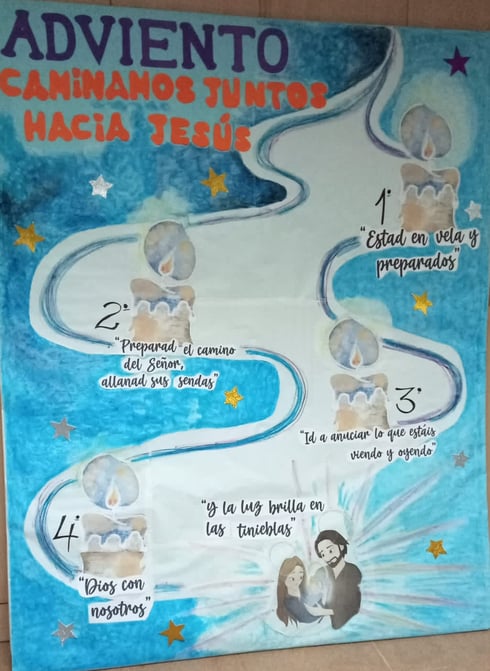 ADVIENTO
CAMINAMOS JUNTOS
HACIA JESÚS
1°
"Estad en vela y
preparados"
2°
"Preparad el camino
del Señor,
allanad sus sendas"
3°
"Id a anuciar lo que estáis
viendo y oyendo"
"y la luz brilla en
las tinieblas"
4°
"Dios con
nosotros"